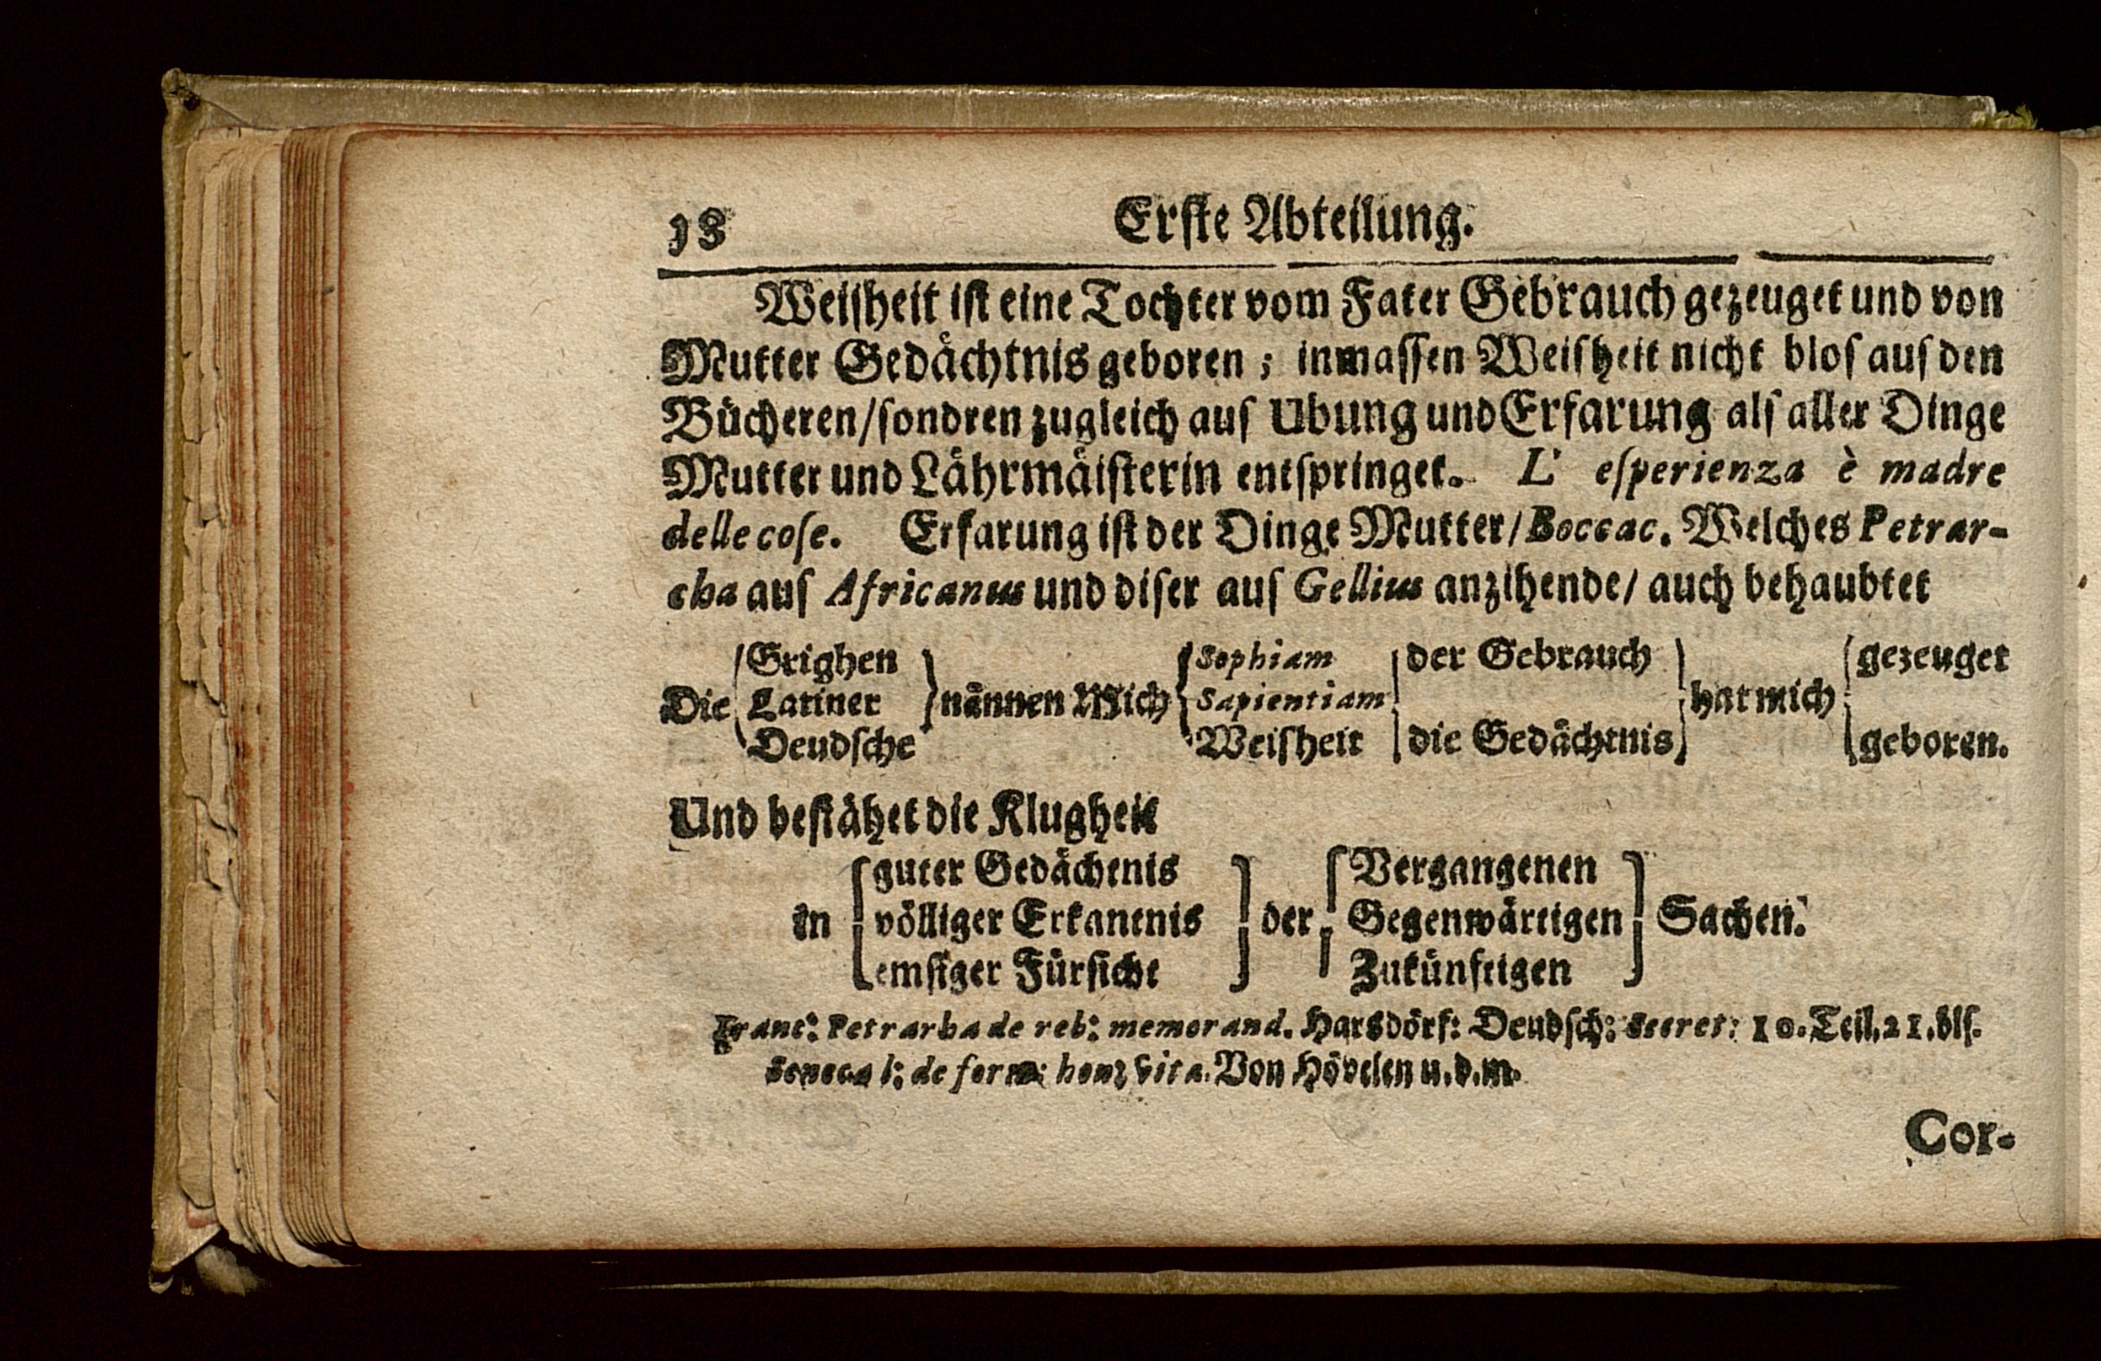 18 Erste Abteilung.
Weisheit ist eine Tochter vom Fater Gebrauch gezeuget und von
Mutter Gedächtnis geboren; inmassen Weisheit nicht blos aus den
Bücheren/sondren zugleich aus Ubung und Erfarung als aller Dinge
Mutter und Lährmäisterin entspringet. L' esperienza è madre
delle cose. Erfarung ist der Dinge Mutter/Boccac. Welches Petrar-
cha aus Africanus und diser aus Gellius anzihende/ auch behaubtet
Grighen Sophiam der Gebrauch gezeuget
Die Latiner nännen Mich Sapientiam hat mich
Deudsche Weisheit die Gedächtnis geboren.
Und bestähet die Klugheit
guter Gedächtnis Vergangenen
in völliger Erkantnis der Gegenwärtigen Sachen.
emsiger Fürsicht Zukünftigen
Franc: Petrarha de reb: memorand. Harsdörf: Deudsch: Secret: 10. Teil. 21. bls.
Seneca l: de form: hon: vita. Von Hövelen u.d.m.
Cor-